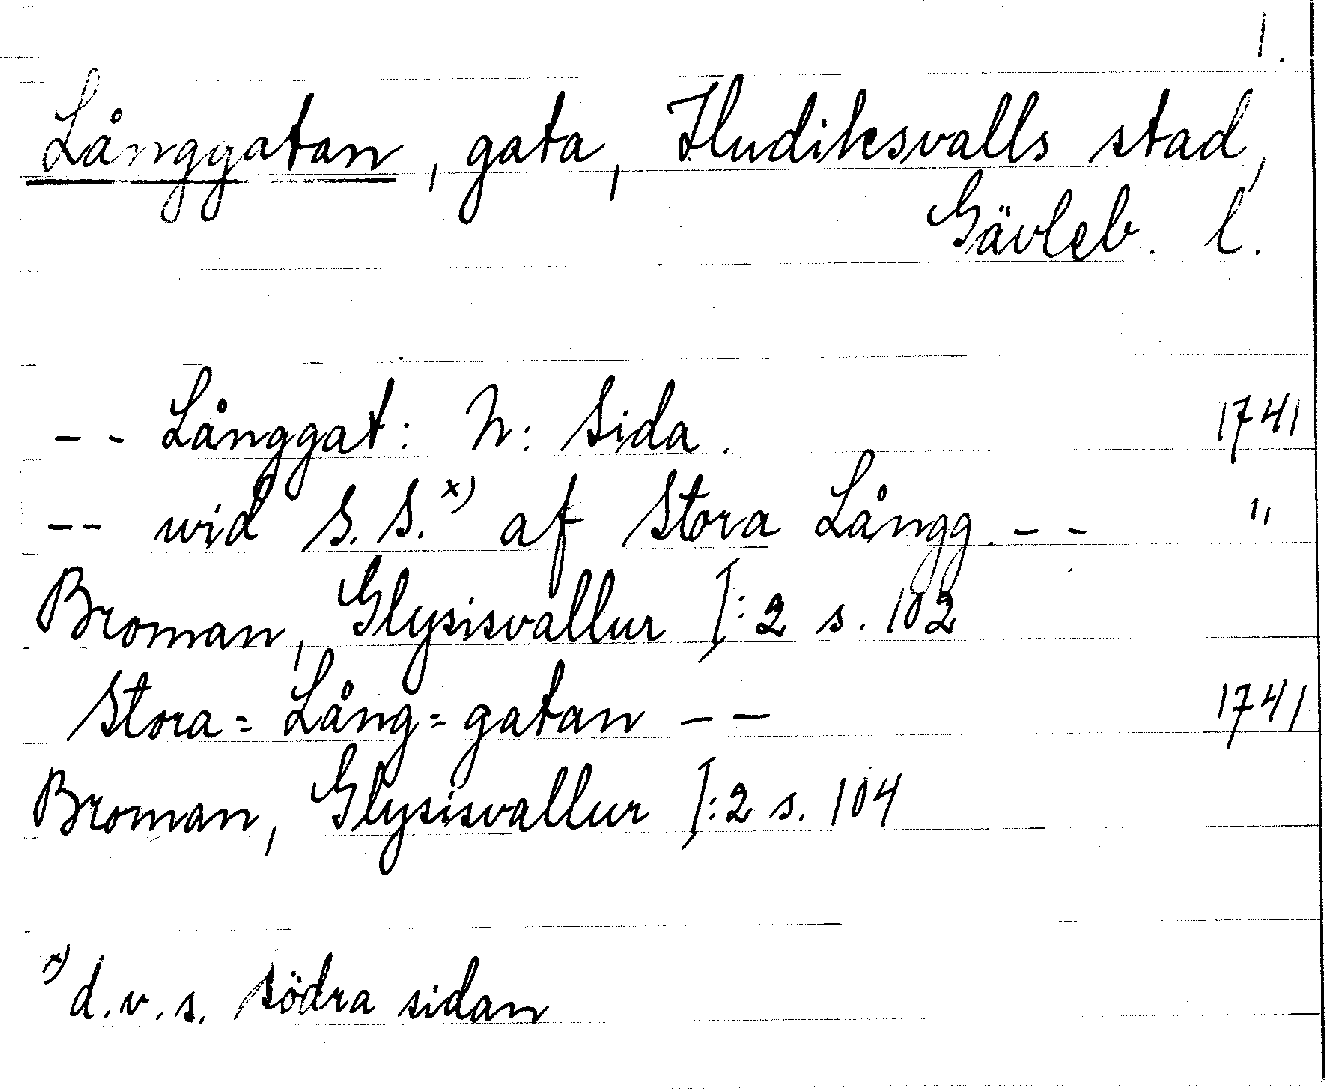 1.
Långgatan, gata, Hudiksvalls stad,
Gävleb. l.
-- Långgat: N: Sida. 1741
-- wid S. S.x) af Stora Långg. -- "
Broman, Glysisvallur I:2 s. 102
Stora=Lång=gatan -- 1741
Broman, Glysisvallur I:2 s. 104
x) d.v.s. södra sidan